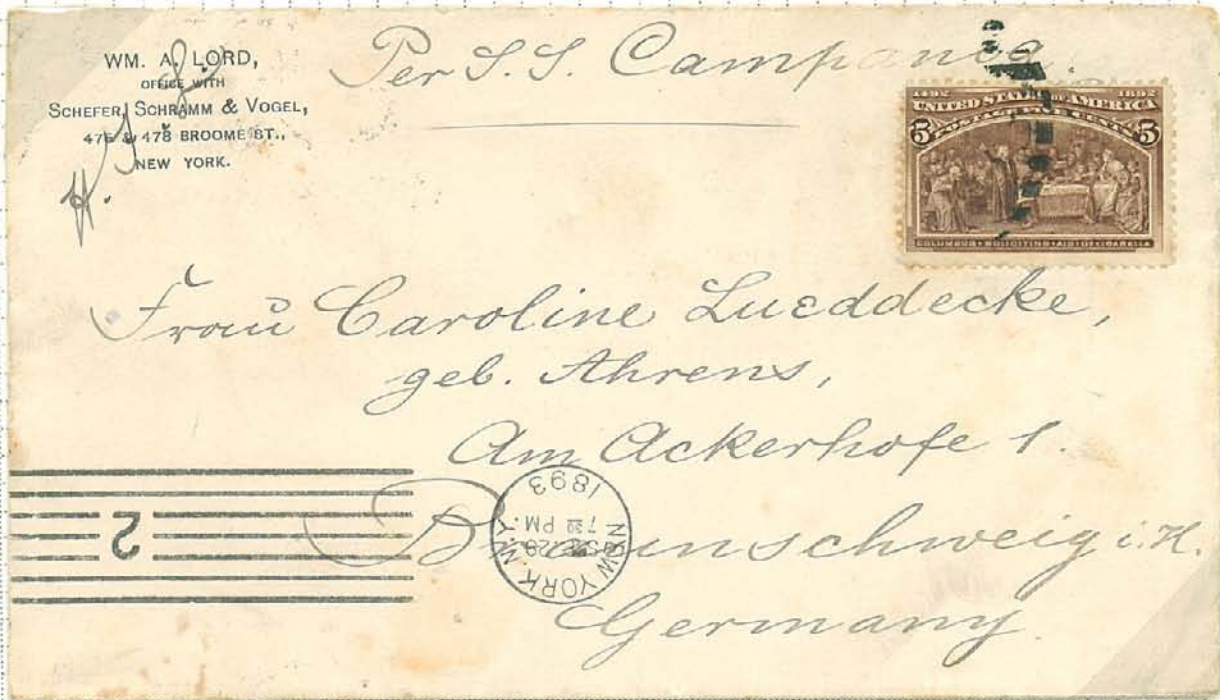 WM. A. LORD,
OFFICE WITH
SCHEFER, SCHRAMM & VOGEL,
476 & 478 BROOME ST.,
NEW YORK.
Per S.S. Campania.
1492 1892
UNITED STATES OF AMERICA
5 POSTAGE FIVE CENTS 5
COLUMBUS SOLICITING AID OF ISABELLA
Frau Caroline Lueddecke,
geb. Ahrens,
Am Ackerhofe 1.
Braunschweig i. H.
Germany.
2
NEW YORK, N.Y.
SEP 28
7 30 PM
1893